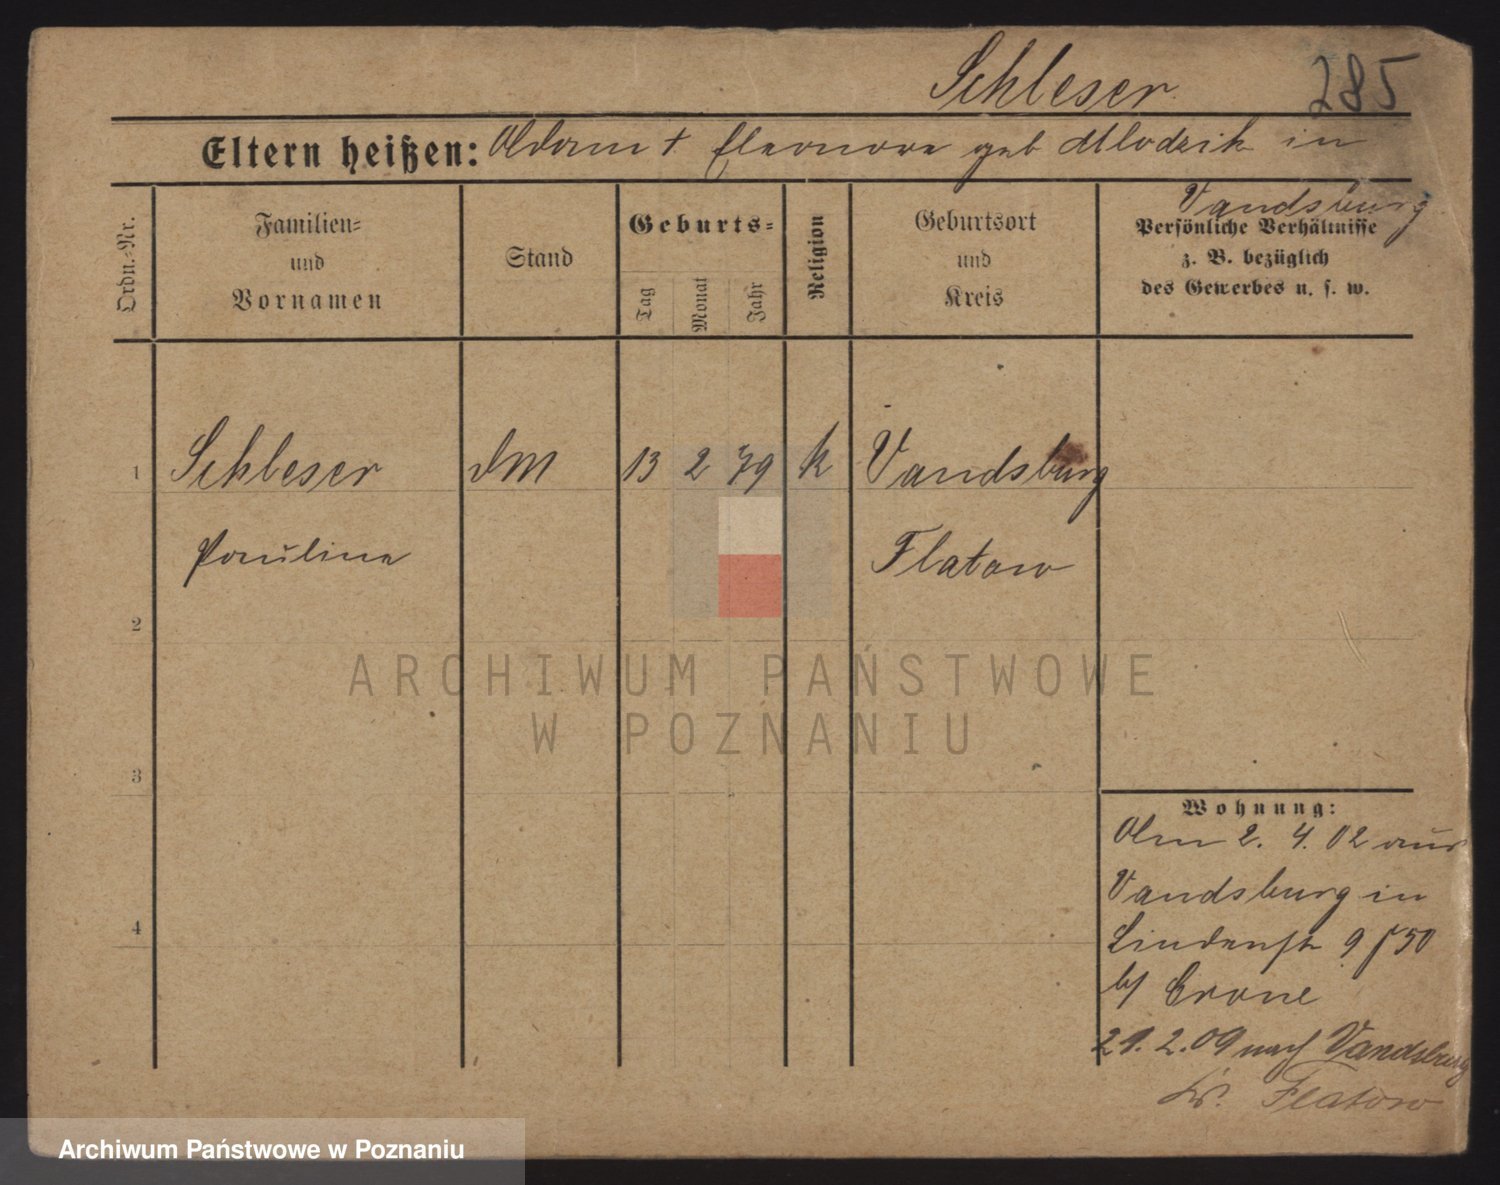 Schleser 285
Eltern heißen: Adam † Eleonore geb Mlodzik in
Vandsburg
Ordn.-Nr.
Familien- und Vornamen
Stand
Geburts-
Tag
Monat
Jahr
Religion
Geburtsort und Kreis
Persönliche Verhältnisse
z. B. bezüglich
des Gewerbes u. s. w.
1 Schleser DM 13 2 79 k Vandsburg
Pauline Flatow
2
3
4
Wohnung:
Am 2. 4. 02 aus
Vandsburg in
Lindenstr 9 f 50
b/ Crone
21. 2. 09 nach Vandsburg
Kr. Flatow
ARCHIWUM PAŃSTWOWE
W POZNANIU
Archiwum Państwowe w Poznaniu